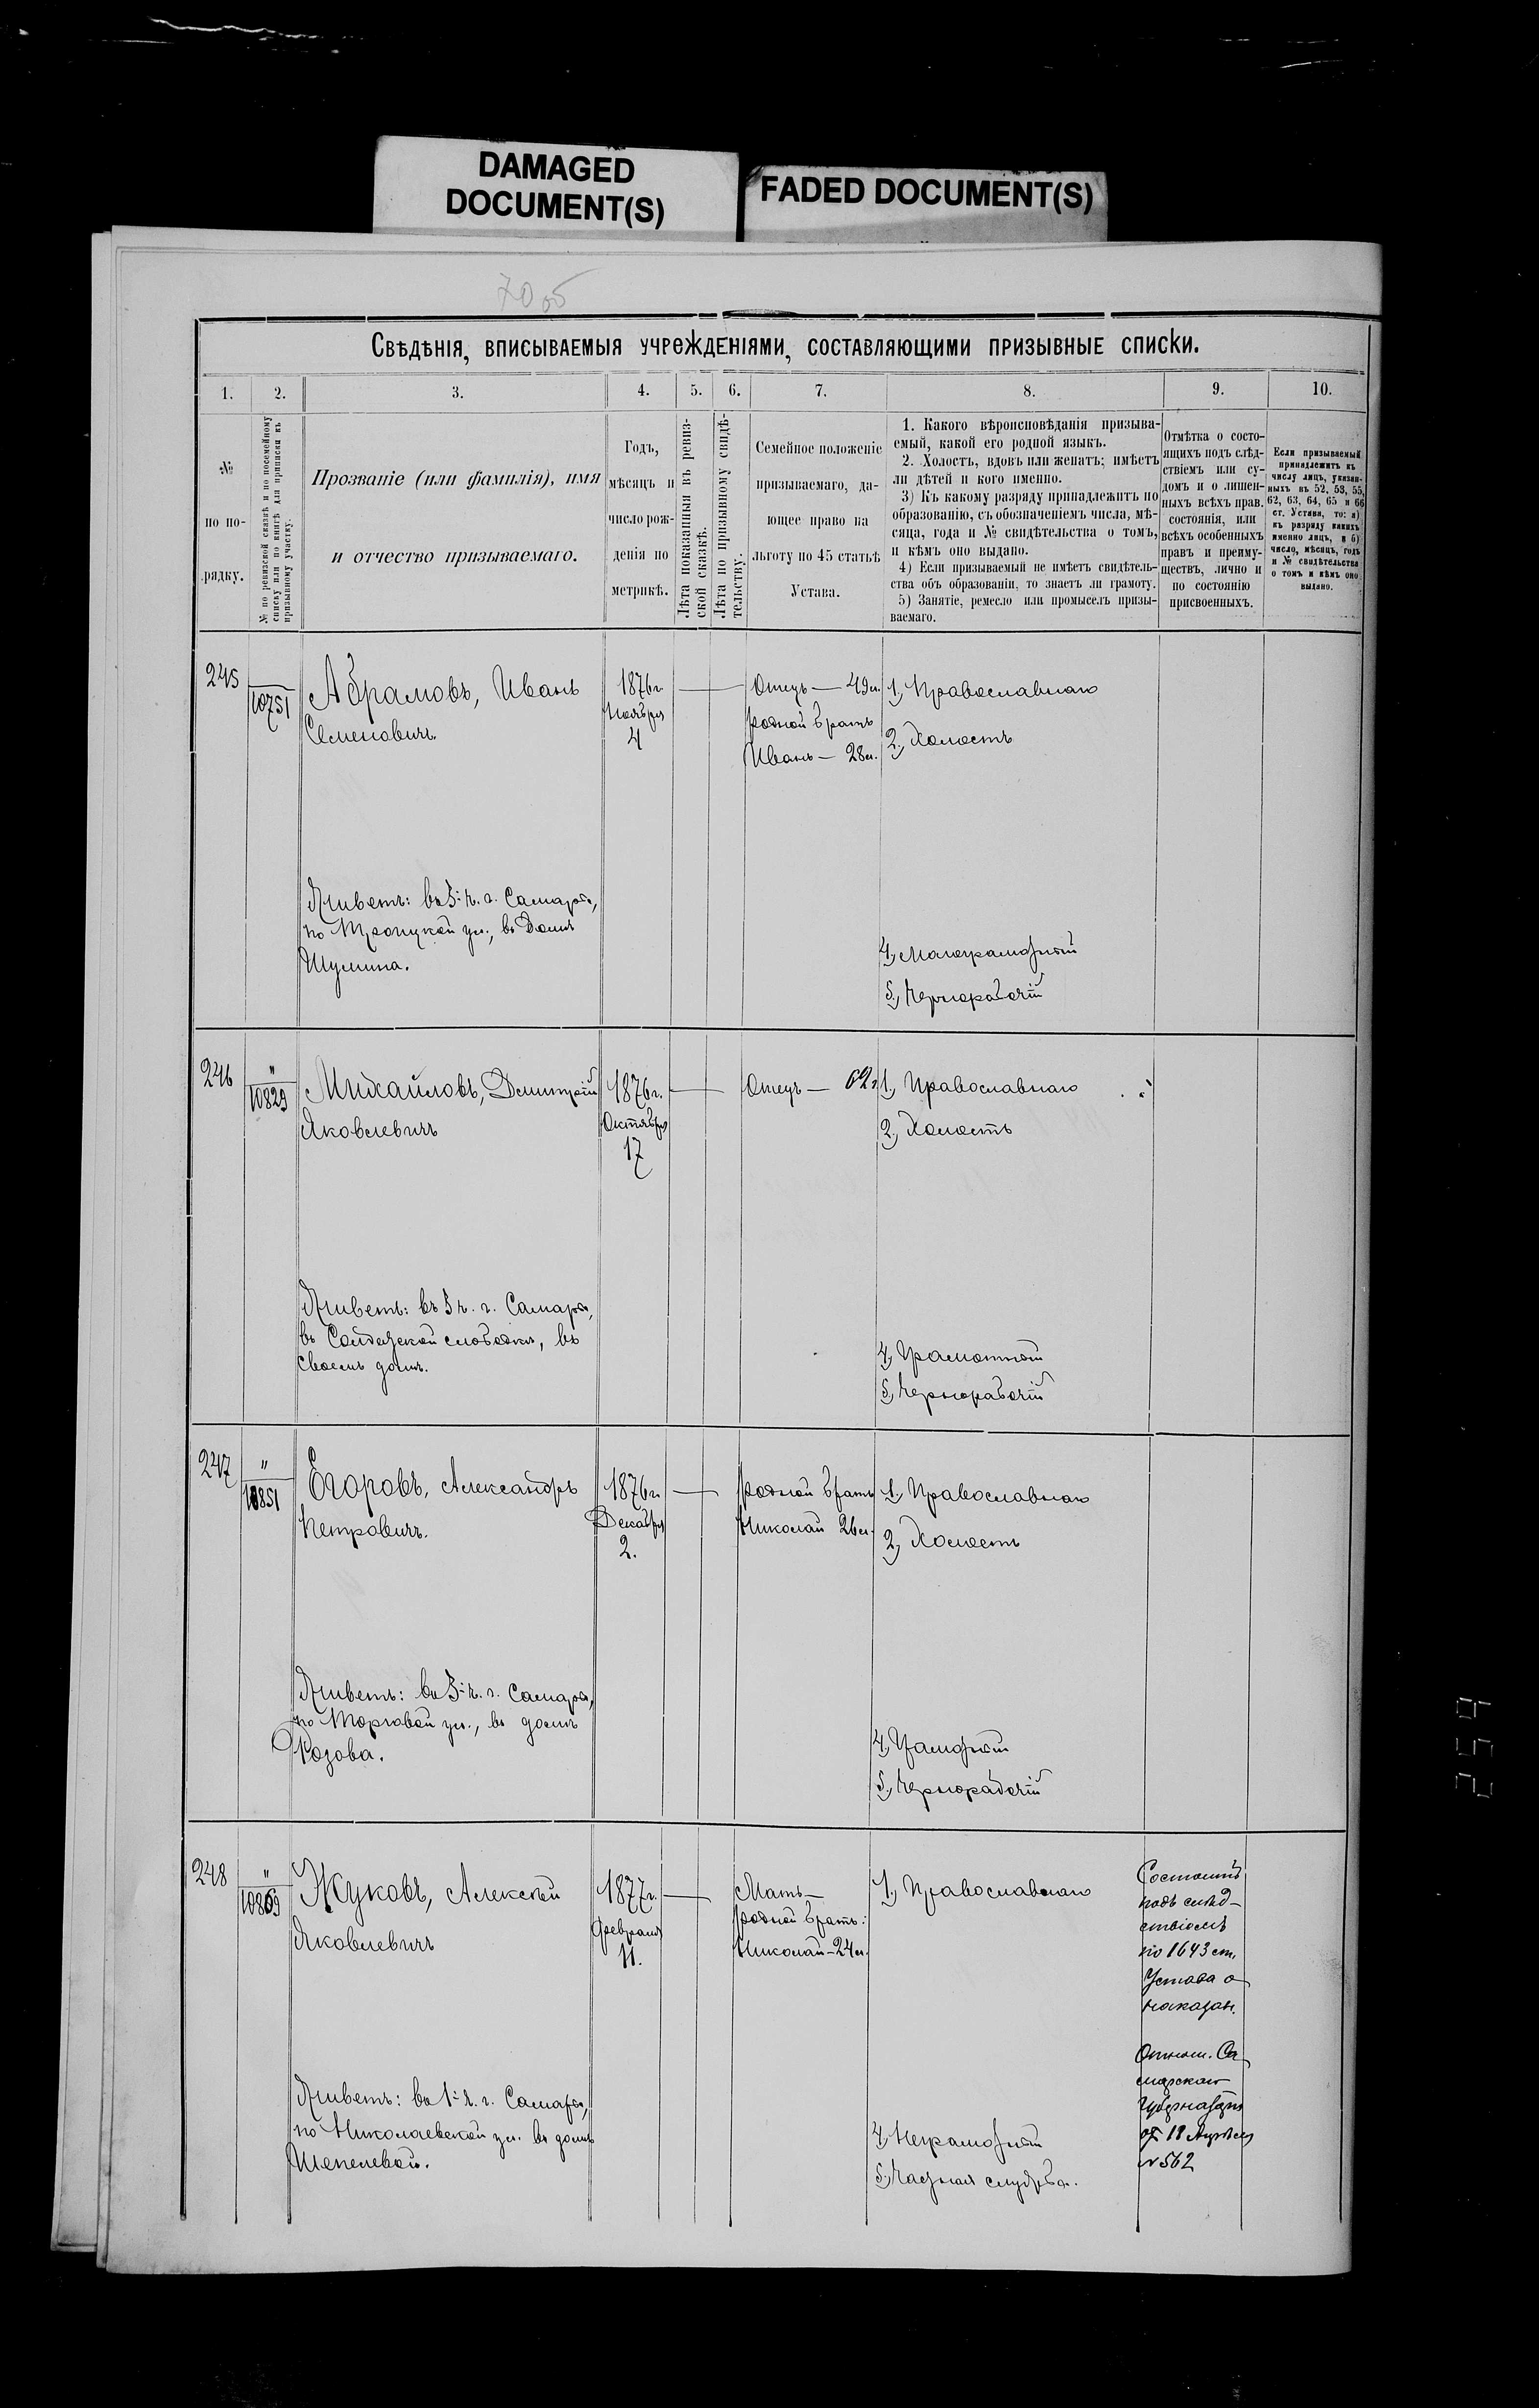 DAMAGED
DOCUMENT(S)
FADED DOCUMENT(S)
70 об
Свѣдѣнія, вписываемыя учрежденіями, составляющими призывные списки.
1. 2. 3. 4. 5. 6. 7. 8. 9. 10.
№
по по-
рядку.
№ по ревизской сказкѣ и по посемейному
списку или по книгѣ для приписки къ
призывному участку.
Прозваніе (или фамилія), имя
и отчество призываемаго.
Годъ,
мѣсяцъ и
число рож-
денія по
метрикѣ.
Лѣта показанныя въ ревиз-
ской сказкѣ.
Лѣта по призывному свидѣ-
тельству.
Семейное положеніе
призываемаго, да-
ющее право на
льготу по 45 статьѣ
Устава.
1. Какого вѣроисповѣданія призыва-
емый, какой его родной языкъ.
2. Холостъ, вдовъ или женатъ; имѣетъ
ли дѣтей и кого именно.
3) Къ какому разряду принадлежитъ по
образованію, съ обозначеніемъ числа, мѣ-
сяца, года и № свидѣтельства о томъ,
и кѣмъ оно выдано.
4) Если призываемый не имѣетъ свидѣтель-
ства объ образованіи, то знаетъ ли грамоту.
5) Занятіе, ремесло или промыселъ призы-
ваемаго.
Отмѣтка о состо-
ящихъ подъ слѣд-
ствіемъ или су-
домъ и о лишен-
ныхъ всѣхъ правъ
состоянія, или
всѣхъ особенныхъ
правъ и преиму-
ществъ, лично и
по состоянію
присвоенныхъ.
Если призываемый
принадлежитъ къ
числу лицъ, указан-
ныхъ въ 52, 53, 55,
62, 63, 64, 65 и 66
ст. Устава, то: а)
къ разряду какихъ
именно лицъ, и б)
число, мѣсяцъ, годъ
и № свидѣтельства
о томъ и кѣмъ оно
выдано.
245
10751
Абрамовъ, Иванъ
Семеновичъ.
1876 г.
Ноября
4
Отецъ — 49 л.
родной братъ
Иванъ — 28 л.
1, Православнаго
2, Холостъ
Живетъ: въ 3-й ч. г. Самары,
по Троицкой ул., въ домѣ
Шумина.
4, Малограмотный
5, Чернорабочій
246
"
10829
Михайловъ, Дмитрій
Яковлевичъ
1876 г.
Октября
17
Отецъ — 62 л
1, Православнаго
2, Холостъ
Живетъ: въ 3 ч. г. Самары,
въ Солдатской слободкѣ, въ
своемъ домѣ.
4, Грамотный
5, Чернорабочій
247
"
10851
Егоровъ, Александръ
Петровичъ.
1876 г.
Декабря
2.
родной братъ
Николай 26 л.
1, Православнаго
2, Холостъ
Живетъ: въ 3-й ч. г. Самары,
по Торговой ул., въ домѣ
Розова.
4, Грамотный
5, Чернорабочій
248
"
10869
Жуковъ, Алексѣй
Яковлевичъ
1877 г.
Февраля
11.
Мать —
родной братъ:
Николай — 24 л.
1, Православнаго
Состоитъ
подъ слѣд-
ствіемъ
по 1643 ст.
Устава о
наказан.
Отнош. Са-
марскаго
Губернатора
отъ 18 Апрѣля
№ 562
Живетъ: въ 1-й ч. г. Самары,
по Николаевской ул. въ домѣ
Шепелевой.
4, Неграмотный
5, Частная служба.
259